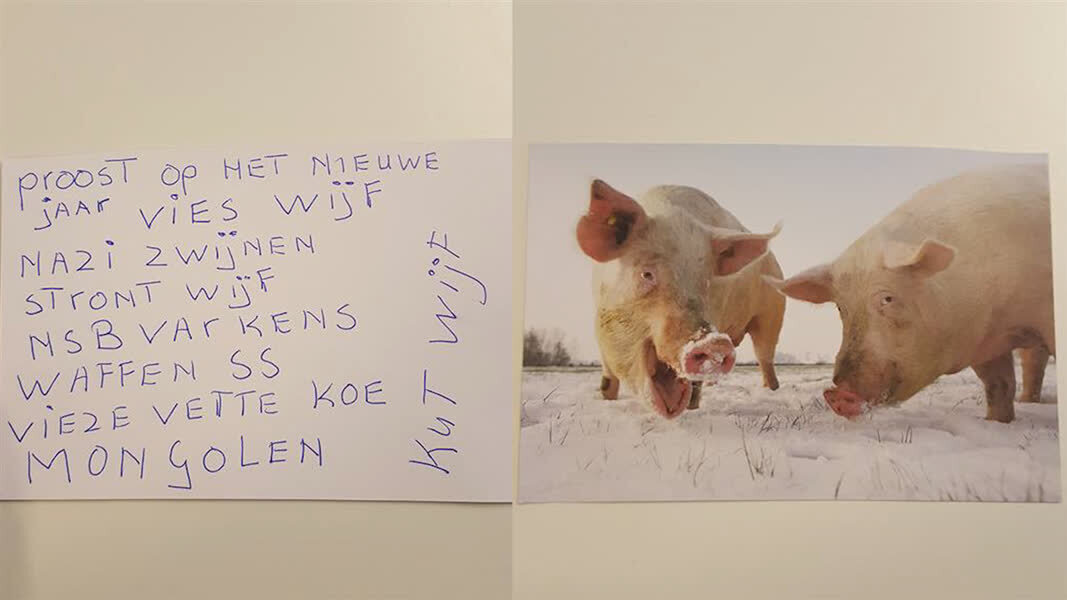 proosT op HET NIEUWE
jaar ViES WijF
NAZi ZWijNEN
STRONT WijF
NSB VArKENS
WAFFEN SS
ViEZE VETTE KOE
MONGOLEN
KuT WijF